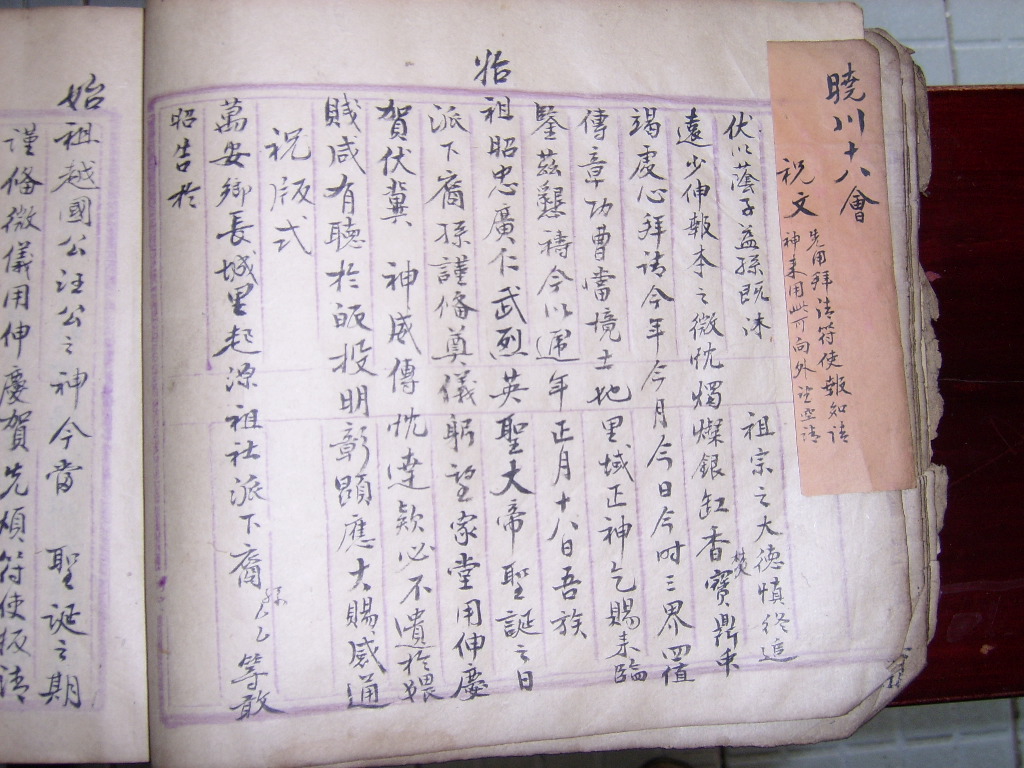 曉川十八會
祝文
先用拜請符使報知請
神来用此可向外望空請
伏以蔭子益孫既沐 祖宗之大德慎終追
遠少伸報本之微忱燭燦銀缸香焚寶鼎中
竭虔心拜請今年今月今日今时三界四值
傳章功曹當境土地里域正神乞賜来臨
鑒茲懇禱今以遇年正月十八日吾族
始
祖昭忠廣仁武烈英聖大帝聖誕之日
派下裔孫謹俻奠儀躬望家堂用伸慶
賀伏冀 神威傳忱達欵必不遺於猥
賤咸有聽於皈投明彰顯應大賜威通
祝版式
萬安鄉長城里起源祖社派下裔孫么等敢
昭告於
始祖越國公汪公之神今當 聖誕之期
謹俻微儀用伸慶賀先煩符使扳請